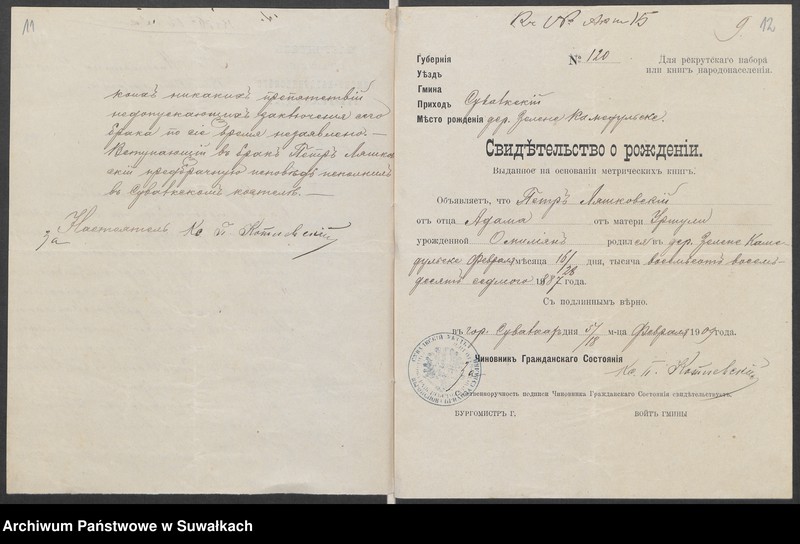 11
коихъ никакихъ препятствій
недопускающихъ заключенія сего
брака по сіе время незаявлено. —
Вступающій въ бракъ Петръ Ляшков
скій предбрачную исповѣдь исполнилъ
въ Сувалкскомъ костелѣ. —
За Настоятель Кс. П. Котлевскій
Къ № Акт 15
9 12
Губернія
Уѣздъ
Гмина
Приходъ Сувалкскій
Мѣсто рожденія дер. Зелене Камедульске.
№ 120
Для рекрутскаго набора
или книгъ народонаселенія.
Свидѣтельство о рожденіи.
Выданное на основаніи метрическихъ книгъ.
Объявляетъ, что Петръ Ляшковскій
отъ отца Адама отъ матери Уршули
урожденной родился въ дер. Зелене Каме-
дульске Февраля мѣсяца 16/28 дня, тысяча восемьсотъ восемь-
десятъ седьмого 1887 года.
Съ подлиннымъ вѣрно.
въ гор. Сувалкахъ дня 5/18 м-ца Февраля 1909 года.
Чиновникъ Гражданскаго Состоянія
Кс. П. Котлевскій
Собственноручность подписи Чиновника Гражданскаго Состоянія свидѣтельствуетъ.
БУРГОМИСТРЪ Г. ВОЙТЪ ГМИНЫ
Archiwum Państwowe w Suwałkach